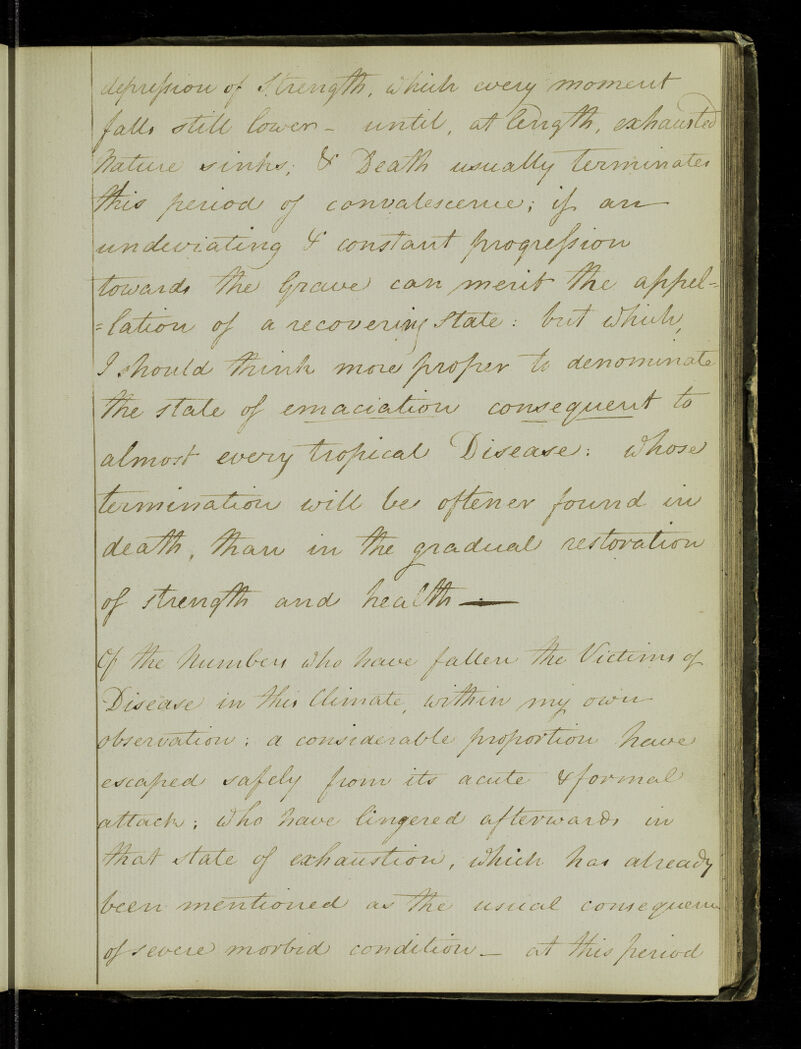 depression of Strength, which every moment
falls still lower – until, at length, exhausted
Nature sinks; & Death usually terminates
this period of convalescence; if an
undeviating & constant progression
towards the Grave can merit the appel=
=lation of a recovering state: but which,
I should think more proper to denominate
the state of emaciation consequent to
almost every tropical Disease: whose
termination will be oftener found in
death, than in the gradual restoration
of strength and health —
Of the Numbers who have fallen the Victims of
Disease in this Climate, within my own
observation; a considerable proportion have
escaped safely from its acute & formal
attack; who have lingered afterwards in
that state of exhaustion, which has already
been mentioned as the usual consequence
of severe morbid condition – at this period